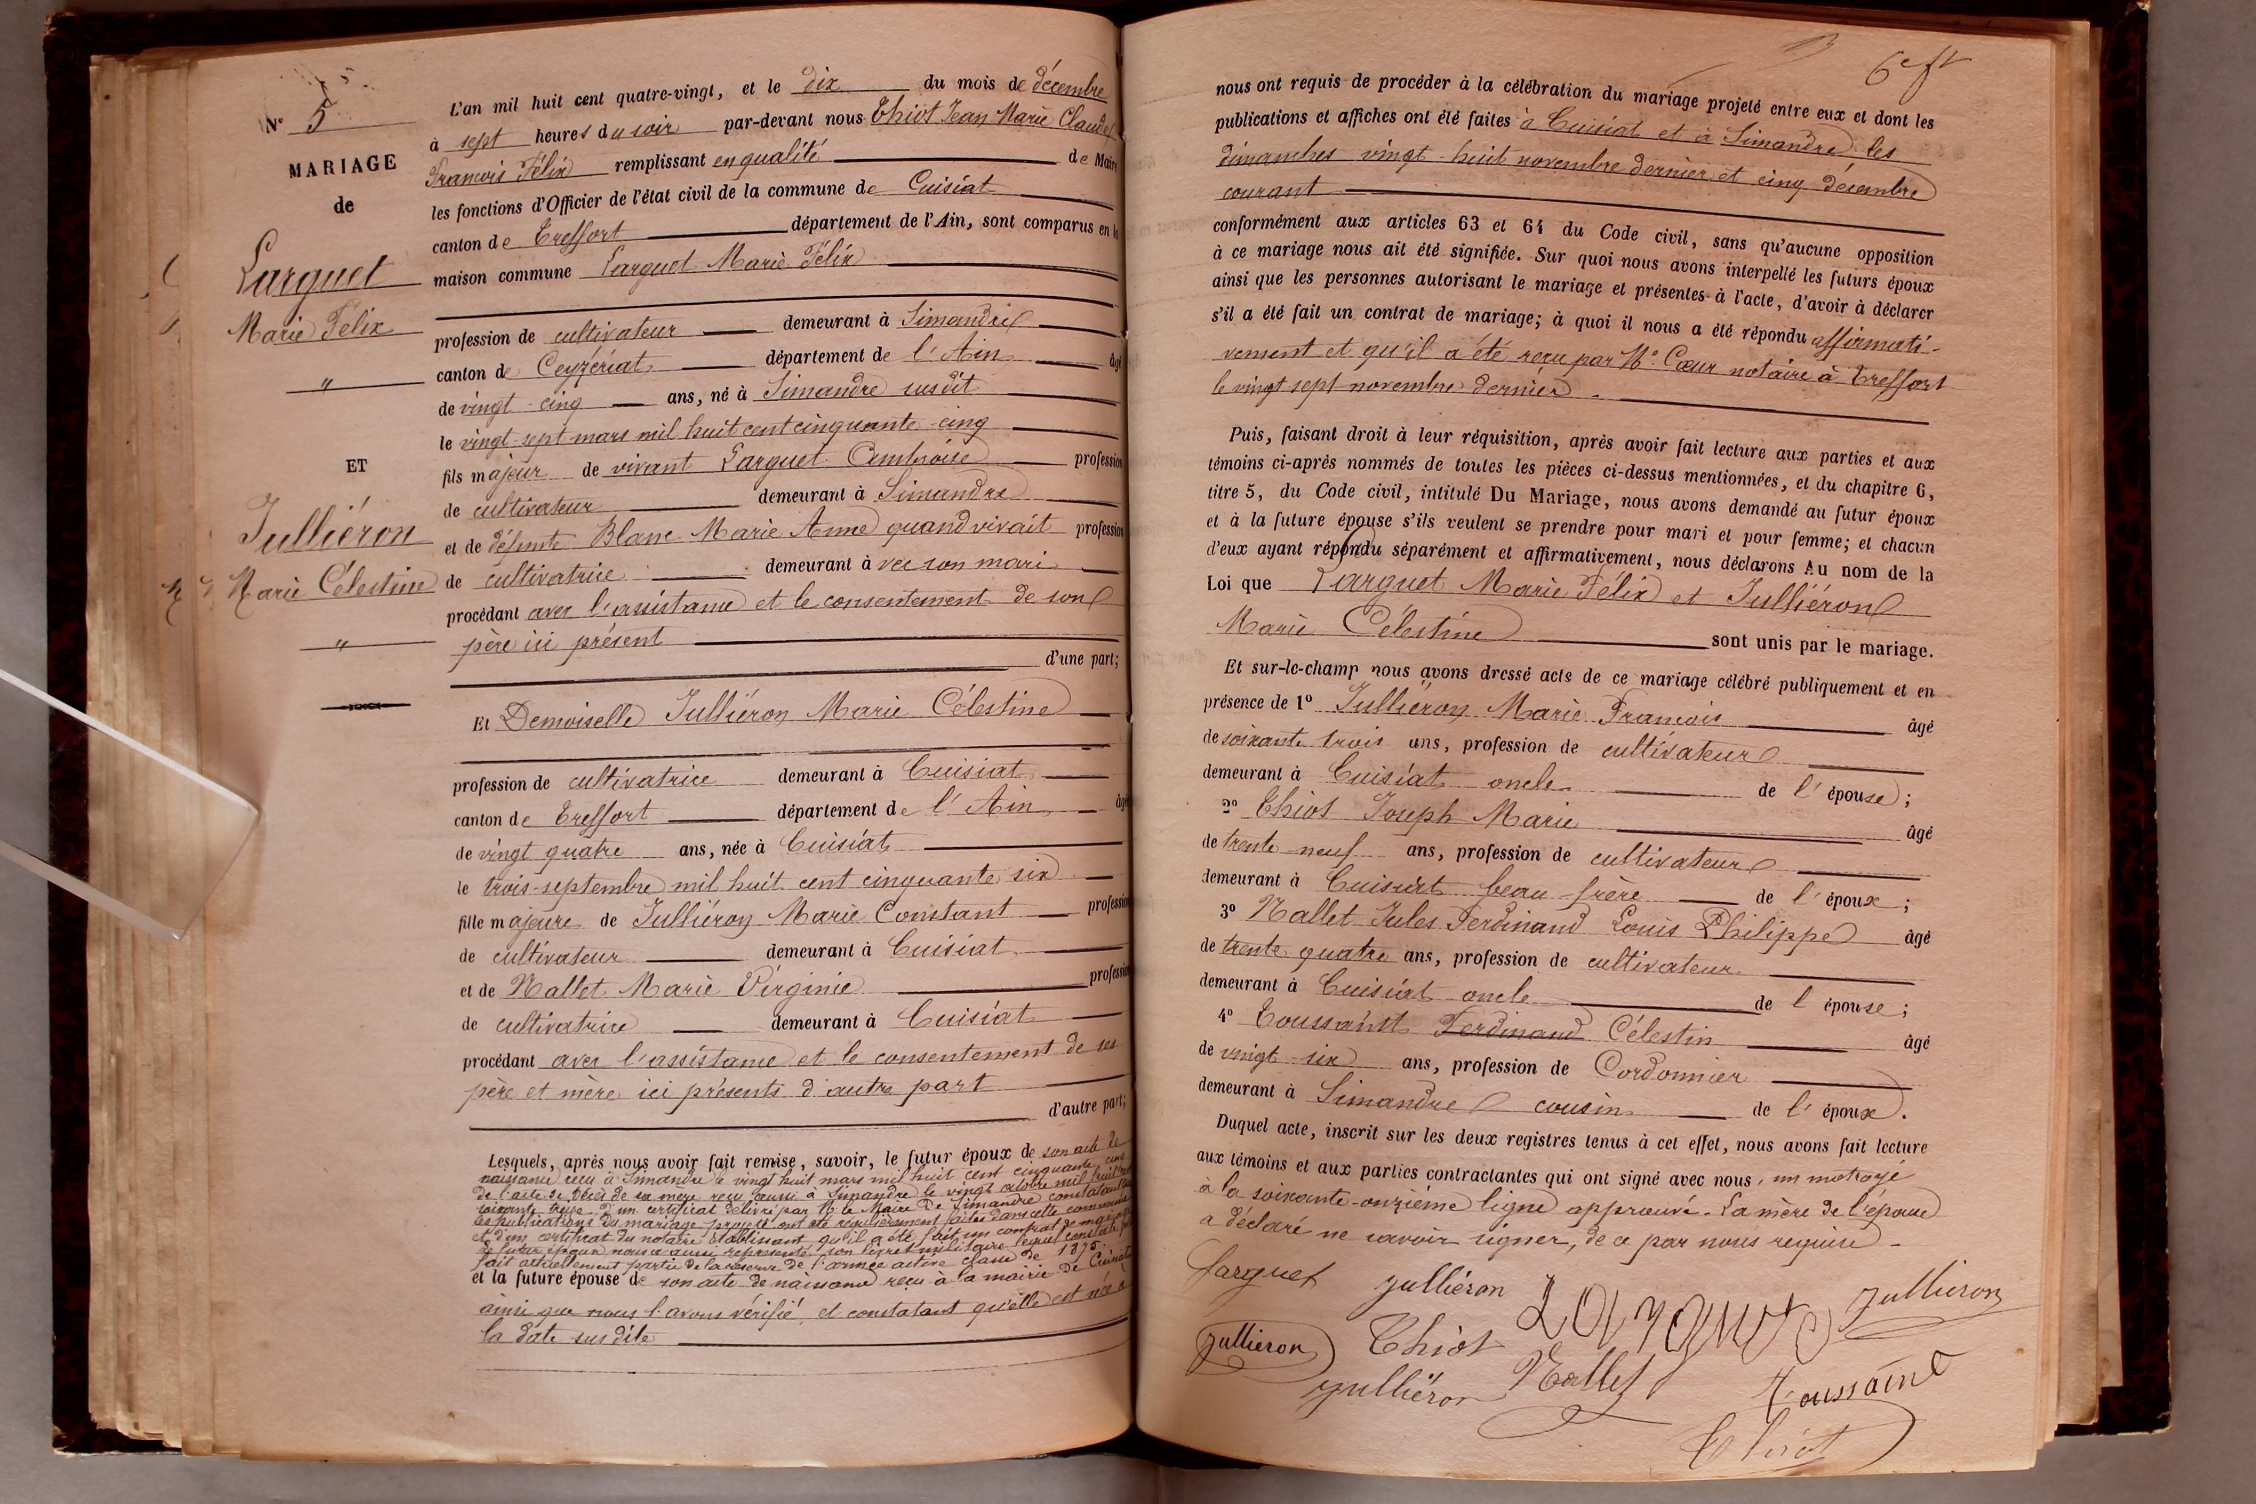 N° 5
MARIAGE
de
Larguet
Marie Félix
"
ET
Julliéron
Marie Célestine
"
L'an mil huit cent quatre-vingt, et le dix du mois de décembre
à sept heures du soir par-devant nous Chiot Jean Marie Claude
François Félix remplissant en qualité de Maire
les fonctions d'Officier de l'état civil de la commune de Cuisiat
canton de Treffort département de l'Ain, sont comparus en la
maison commune Larguet Marie Félix
profession de cultivateur demeurant à Simandre
canton de Ceyzériat département de l'Ain âgé
de vingt-cinq ans, né à Simandre susdit
le vingt-sept mars mil huit cent cinquante-cinq
fils majeur de vivant Larguet Ambroise profession
de cultivateur demeurant à Simandre
et de défunte Blanc Marie Anne quand vivait profession
de cultivatrice demeurant avec son mari
procédant avec l'assistance et le consentement de son
père ici présent
d'une part;
Et Demoiselle Julliéron Marie Célestine
profession de cultivatrice demeurant à Cuisiat
canton de Treffort département de l'Ain âgé
de vingt quatre ans, née à Cuisiat
le trois septembre mil huit cent cinquante six
fille majeure de Julliéron Marie Constant profession
de cultivateur demeurant à Cuisiat
et de Nallet Marie Virginie profession
de cultivatrice demeurant à Cuisiat
procédant avec l'assistance et le consentement de ses
père et mère ici présents d'autre part
d'autre part;
Lesquels, après nous avoir fait remise, savoir, le futur époux de son acte de
naissance reçu à Simandre le vingt huit mars mil huit cent cinquante cinq
de l'acte de décès de sa mère reçu aussi à Simandre le vingt octobre mil huit cent
soixante treize d'un certificat délivré par M. le Maire de Simandre constatant que
les publications du mariage projeté ont été régulièrement faites dans cette commune
et d'un certificat du notaire établissant qu'il a été fait un contrat de mariage
le futur époux nous a aussi représenté son livret militaire lequel constate qu'il
fait actuellement partie de la réserve de l'armée active classe de 1875.
et la future épouse de son acte de naissance reçu à la mairie de Cuisiat
ainsi que nous l'avons vérifié et constatant qu'elle est née à
la date sus dite
6e ft
nous ont requis de procéder à la célébration du mariage projeté entre eux et dont les
publications et affiches ont été faites à Cuisiat et à Simandre les
dimanches vingt-huit novembre dernier et cinq décembre
courant
conformément aux articles 63 et 64 du Code civil, sans qu'aucune opposition
à ce mariage nous ait été signifiée. Sur quoi nous avons interpellé les futurs époux
ainsi que les personnes autorisant le mariage et présentes à l'acte, d'avoir à déclarer
s'il a été fait un contrat de mariage; à quoi il nous a été répondu affirmati-
vement et qu'il a été reçu par Me. Cœur notaire à Treffort
le vingt sept novembre dernier.
Puis, faisant droit à leur réquisition, après avoir fait lecture aux parties et aux
témoins ci-après nommés de toutes les pièces ci-dessus mentionnées, et du chapitre 6,
titre 5, du Code civil, intitulé Du Mariage, nous avons demandé au futur époux
et à la future épouse s'ils veulent se prendre pour mari et pour femme; et chacun
d'eux ayant répondu séparément et affirmativement, nous déclarons Au nom de la
Loi que Larguet Marie Félix et Julliéron
Marie Célestine sont unis par le mariage.
Et sur-le-champ nous avons dressé acte de ce mariage célébré publiquement et en
présence de 1° Julliéron Marie François âgé
de soixante trois ans, profession de cultivateur
demeurant à Cuisiat oncle de l'épouse;
2° Chiot Joseph Marie âgé
de trente-neuf ans, profession de cultivateur
demeurant à Cuisiat beau-frère de l'époux;
3° Nallet Jules Ferdinand Louis Philippe âgé
de trente quatre ans, profession de cultivateur
demeurant à Cuisiat oncle de l'épouse;
4° Toussaint Ferdinand Célestin âgé
de vingt-six ans, profession de Cordonnier
demeurant à Simandre cousin de l'époux.
Duquel acte, inscrit sur les deux registres tenus à cet effet, nous avons fait lecture
aux témoins et aux parties contractantes qui ont signé avec nous, un mot rayé
à la soixante-onzième ligne approuvé. La mère de l'épouse
a déclaré ne savoir signer, de ce par nous requise -
Larguet julliéron Larguet julliéron
julliéron Chiot Nallet Toussaint
julliéron Chiot